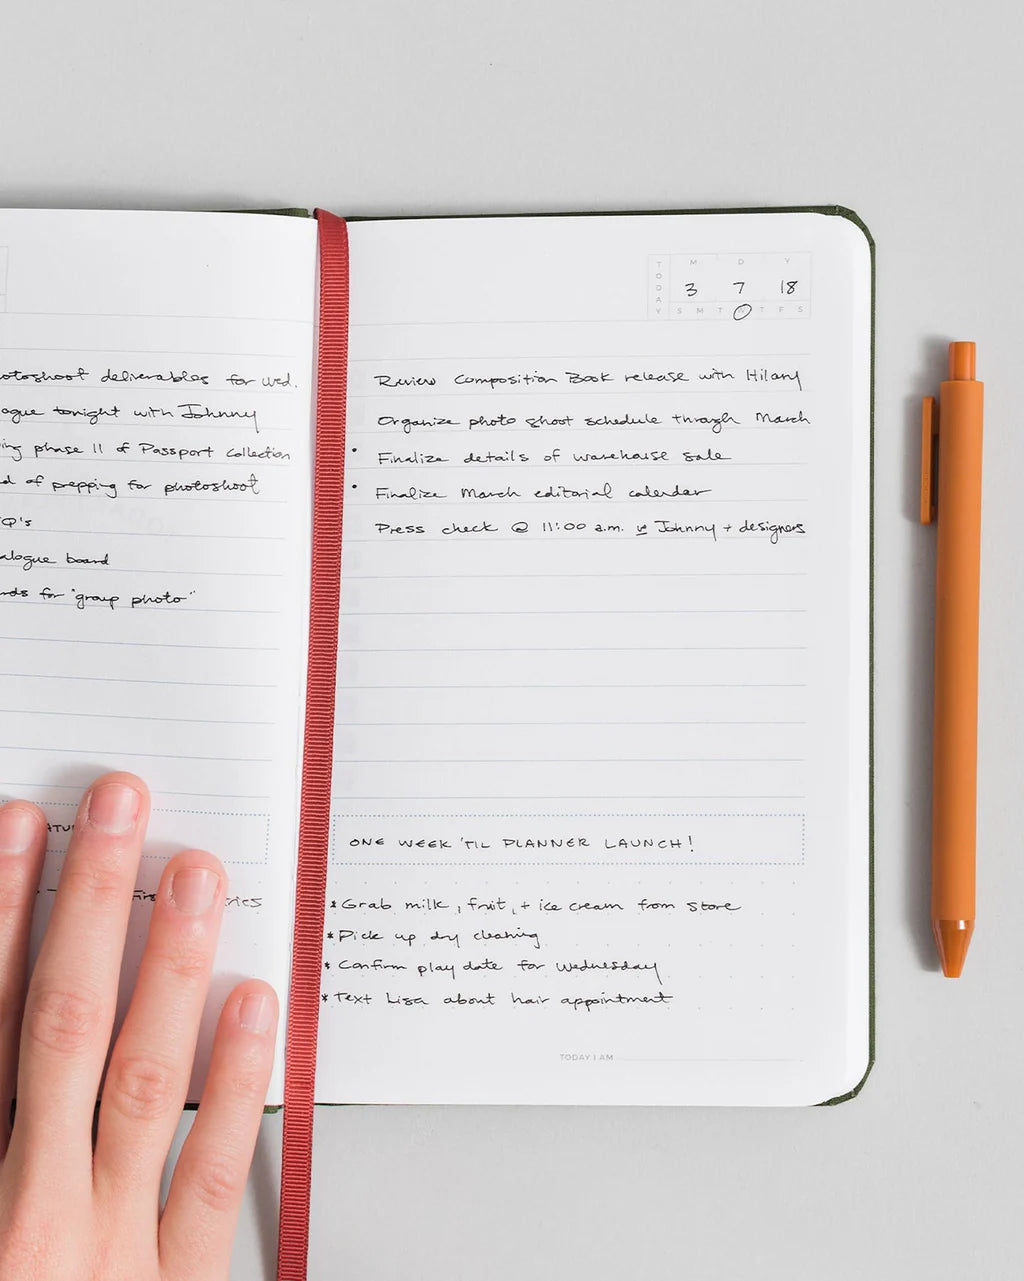 otoshoot deliverables for Wed.
ogue tonight with Johnny
ing phase II of Passport Collection
d of prepping for photoshoot
Q's
alogue board
rds for "group photo"
TODAY
M D Y
3 7 18
S M T W T F S
Review Composition Book release with Hilary
Organize photo shoot schedule through March
• Finalize details of warehouse sale
• Finalize March editorial calendar
Press check @ 11:00 a.m. w Johnny + designers
ONE WEEK 'TIL PLANNER LAUNCH!
* Grab milk, fruit, + ice cream from store
* Pick up dry cleaning
* Confirm play date for Wednesday
* Text Lisa about hair appointment
TODAY I AM